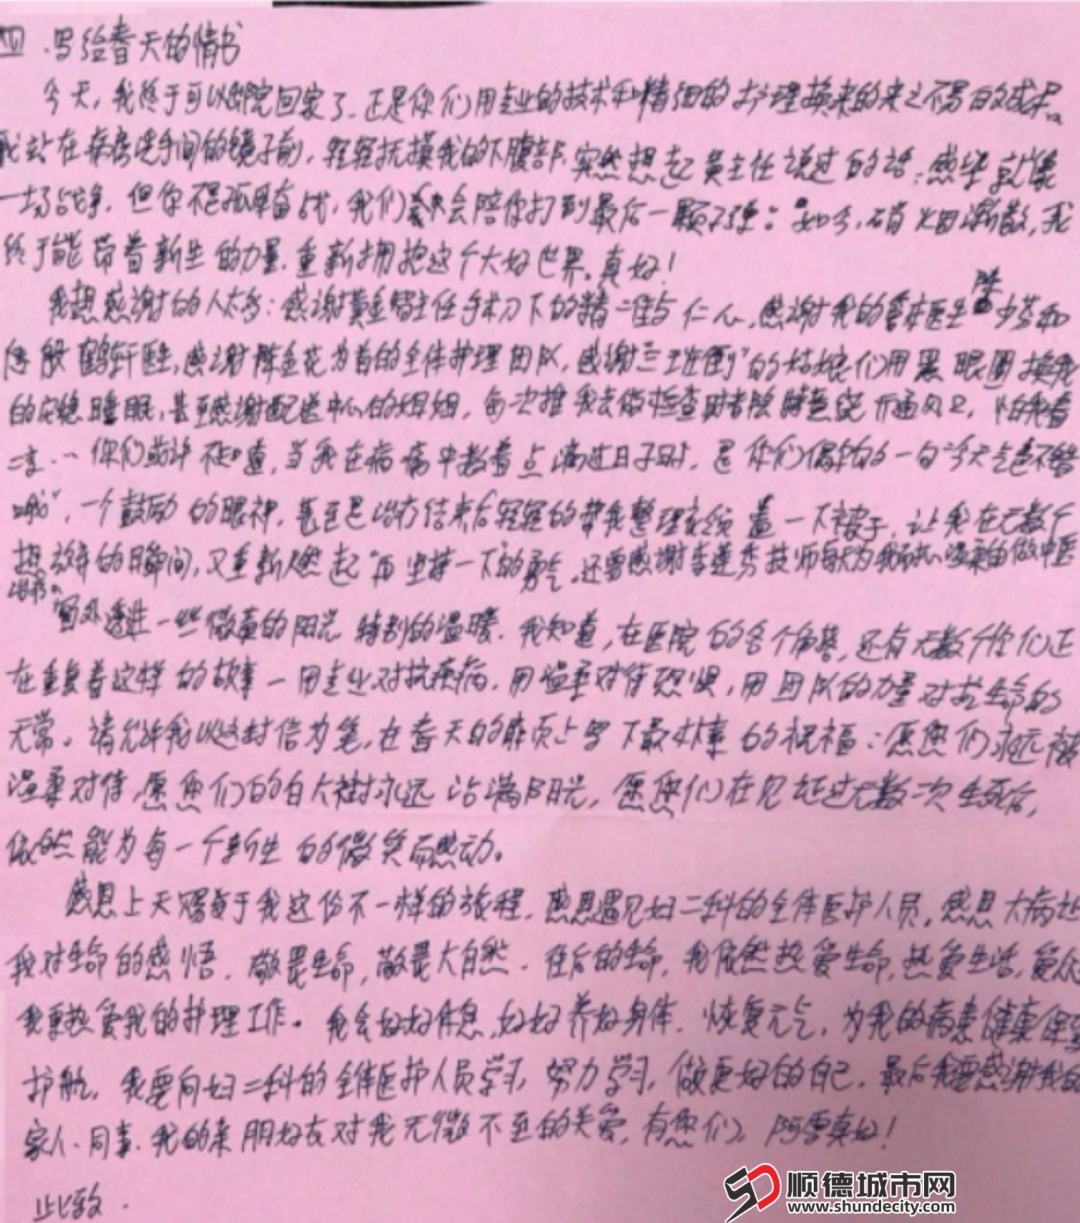 四.写给春天的情书
今天,我终于可以出院回家了.正是你们用专业的技术和精细的护理换来的来之不易的成果.
我站在病房洗手间的镜子前,轻轻抚摸我的下腹部.突然想起黄主任说过的话:感染就像
一场战争.但你不是孤军奋战,我们会陪你打到最后一颗子弹。如今,硝烟渐散,我
终于能带着新生的力量.重新拥抱这个大好世界.真好!
我想感谢的人太多:感谢黄金智主任手术刀下的精准与仁心,感谢我的管床医生陈少芬和
殷鹤轩医生,感谢陈金花为首的全体护理团队,感谢"三班倒"的姑娘们用黑眼圈换我
的安稳睡眠,甚至感谢配送中心的姐姐,每次推我去做检查时都会特意绕开通风口,怕我着
凉...你们或许不知道,当我在病痛中数着点滴过日子时,是你们偶尔的一句"今天气色不错
哦",一个鼓励的眼神,甚至是治疗结束后轻轻的帮我整理衣领 盖一下被子,让我在无数个
想放弃的瞬间,又重新燃起"再坚持一下"的勇气.还要感谢李莲秀技师每天为我温柔的做中医
治疗。
窗外透进一些微薄的阳光 特别的温暖.我知道,在医院的各个角落,还有无数个你们正
在重复着这样的故事—用专业对抗疾病.用温柔对待恐惧,用团队的力量对抗生命的
无常。请允许我以这封信为笔,在春天的扉页上写下最朴素的祝福:愿您们永远被
温柔对待,愿您们的白大褂永远沾满阳光,愿您们在见证过无数次生死后,
依然能为每一个新生的微笑而感动。
感恩上天赐予我这份不一样的旅程.感恩遇见妇二科的全体医护人员,感恩大病让
我对生命的感悟.敬畏生命,敬畏大自然.往后的生命,我依然热爱生命,热爱生活,
我更热爱我的护理工作。我会好好休息,好好养好身体.恢复元气,为我的病患健康保驾
护航.我要向妇二科的全体医护人员学习,努力学习,做更好的自己.最后我要感谢我的
家人.同事.我的亲朋好友对我无微不至的关爱,有您们,阿雪真好!
此致.
顺德城市网
www.shundecity.com